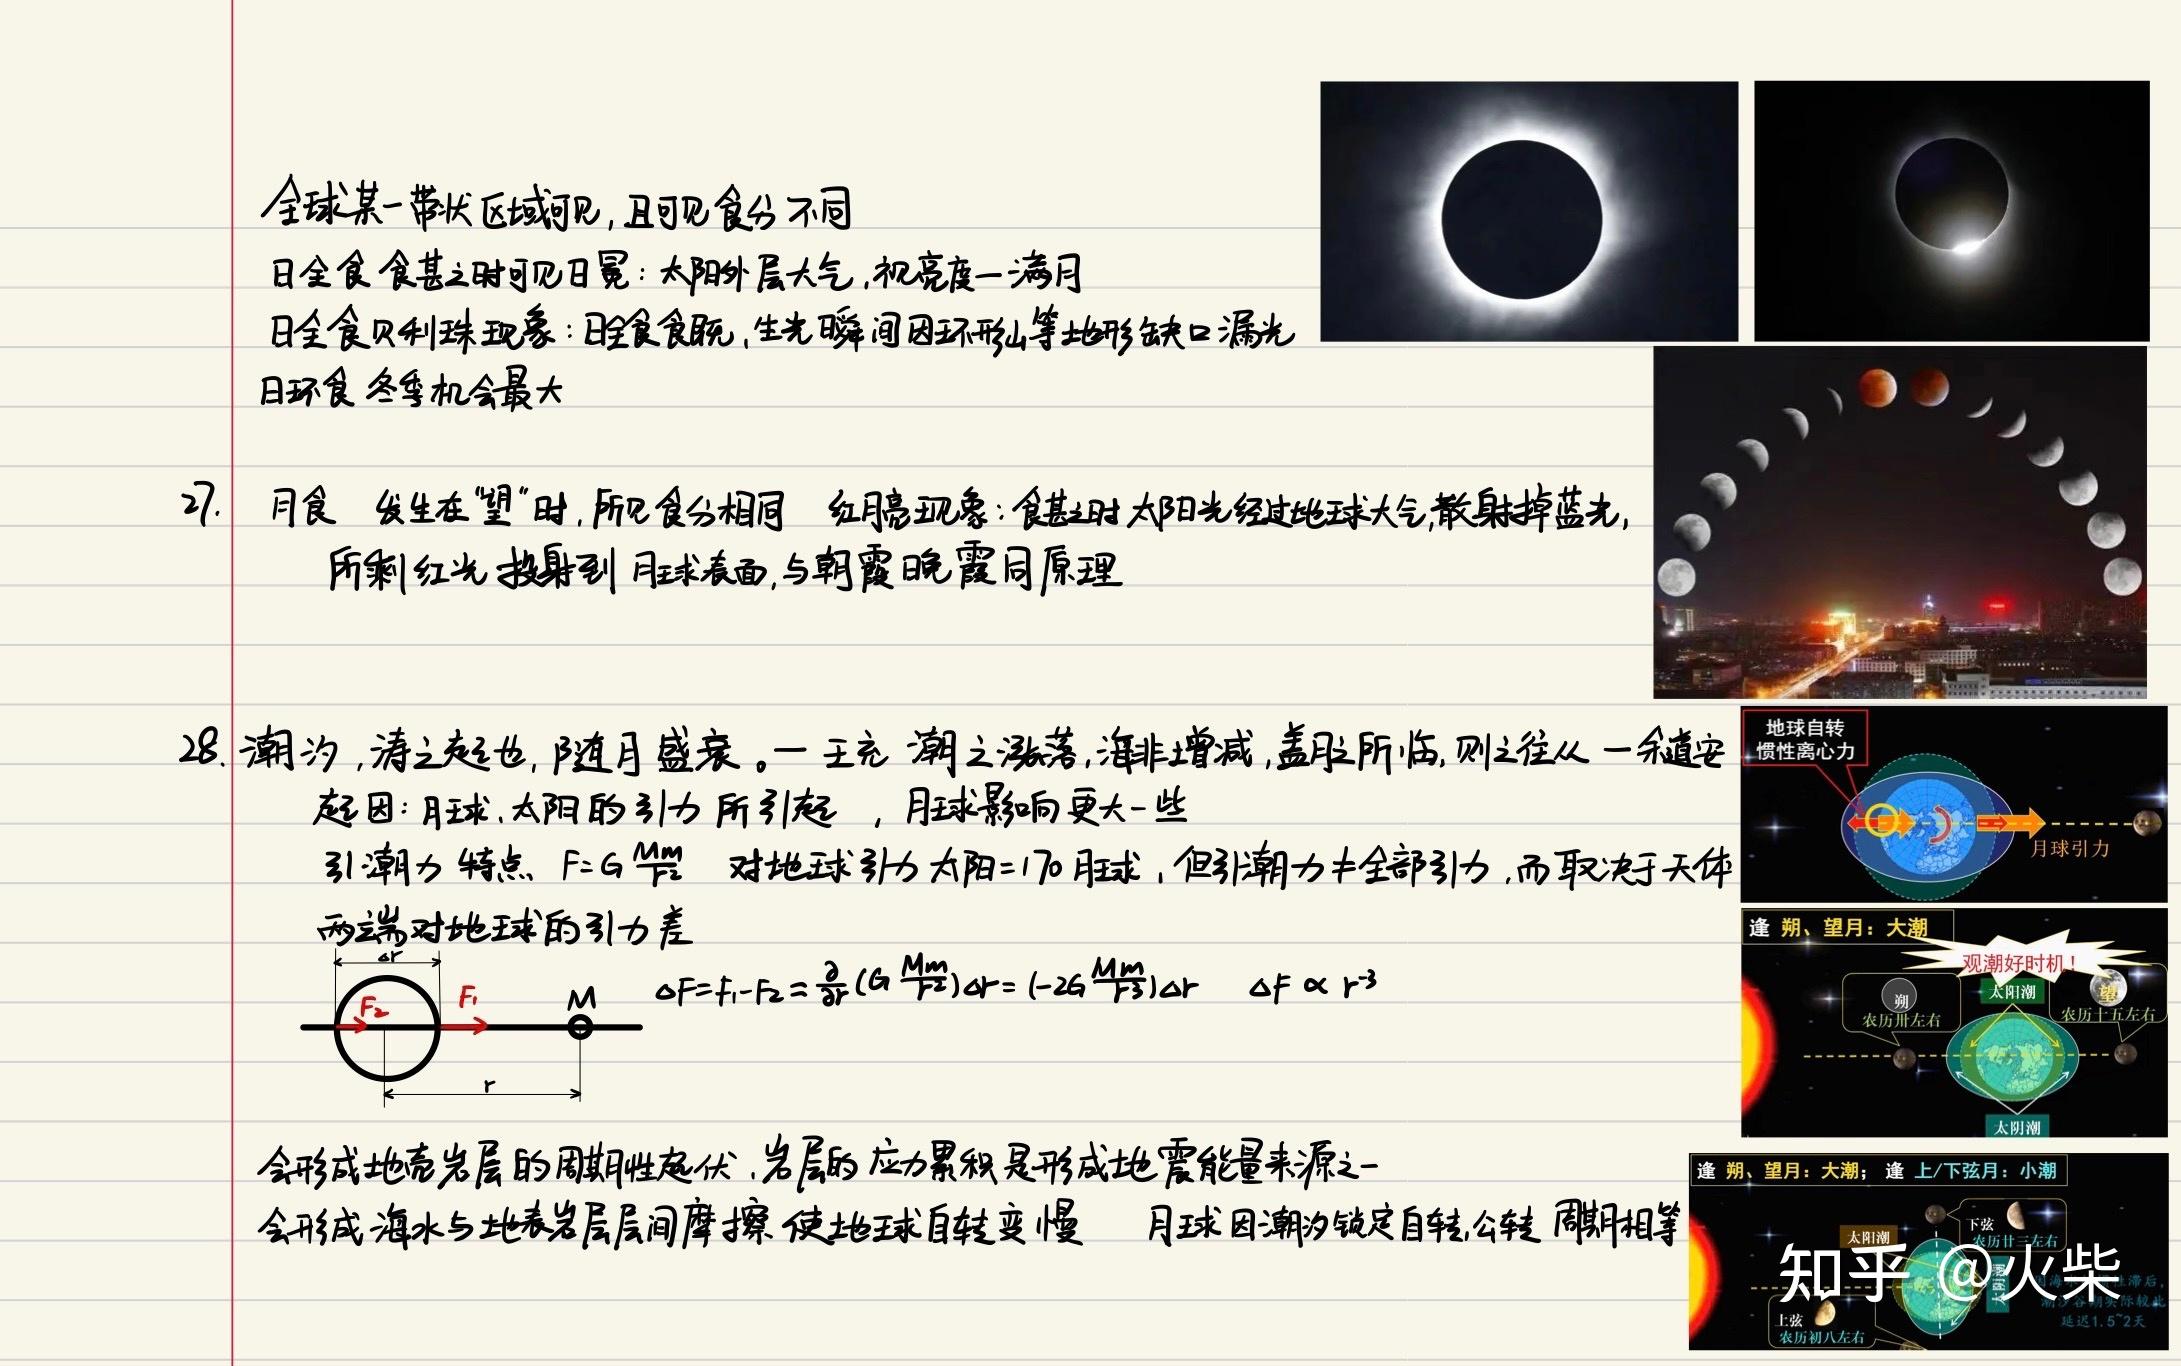 全球某一带状区域可见,且可见食分不同
日全食 食甚之时可见日冕:太阳外层大气,视亮度一满月
日全食贝利珠现象:日全食食既,生光瞬间因环形山等地形缺口漏光
日环食 冬季机会最大
27. 月食 发生在"望"时,所见食分相同 红月亮现象:食甚之时太阳光经过地球大气,散射掉蓝光,
所剩红光投射到月球表面,与朝霞晚霞同原理
28. 潮汐,涛之起也,随月盛衰。一王充 潮之涨落,海非增减,盖月之所临,则之往从 一余道安
起因:月球、太阳的引力所引起 ,月球影响更大一些
引潮力特点 F=G Mm/r² 对地球引力太阳=170月球,但引潮力≠全部引力,而取决于天体
两端对地球的引力差
Δr
F₂ F₁ M
r
ΔF=F₁-F₂=∂/∂r(G Mm/r²)Δr=(-2G Mm/r³)Δr ΔF∝r⁻³
会形成地壳岩层的周期性起伏,岩层的应力累积是形成地震能量来源之一
会形成海水与地表岩层层间摩擦使地球自转变慢 月球因潮汐锁定自转,公转周期相等
地球自转
惯性离心力
月球引力
逢 朔、望月:大潮
观潮好时机!
朔
农历卅左右
太阳潮
望
农历十五左右
太阴潮
逢 朔、望月:大潮; 逢 上/下弦月:小潮
太阳潮
下弦
农历廿三左右
上弦
农历初八左右
延迟1.5~2天
知乎 @火柴